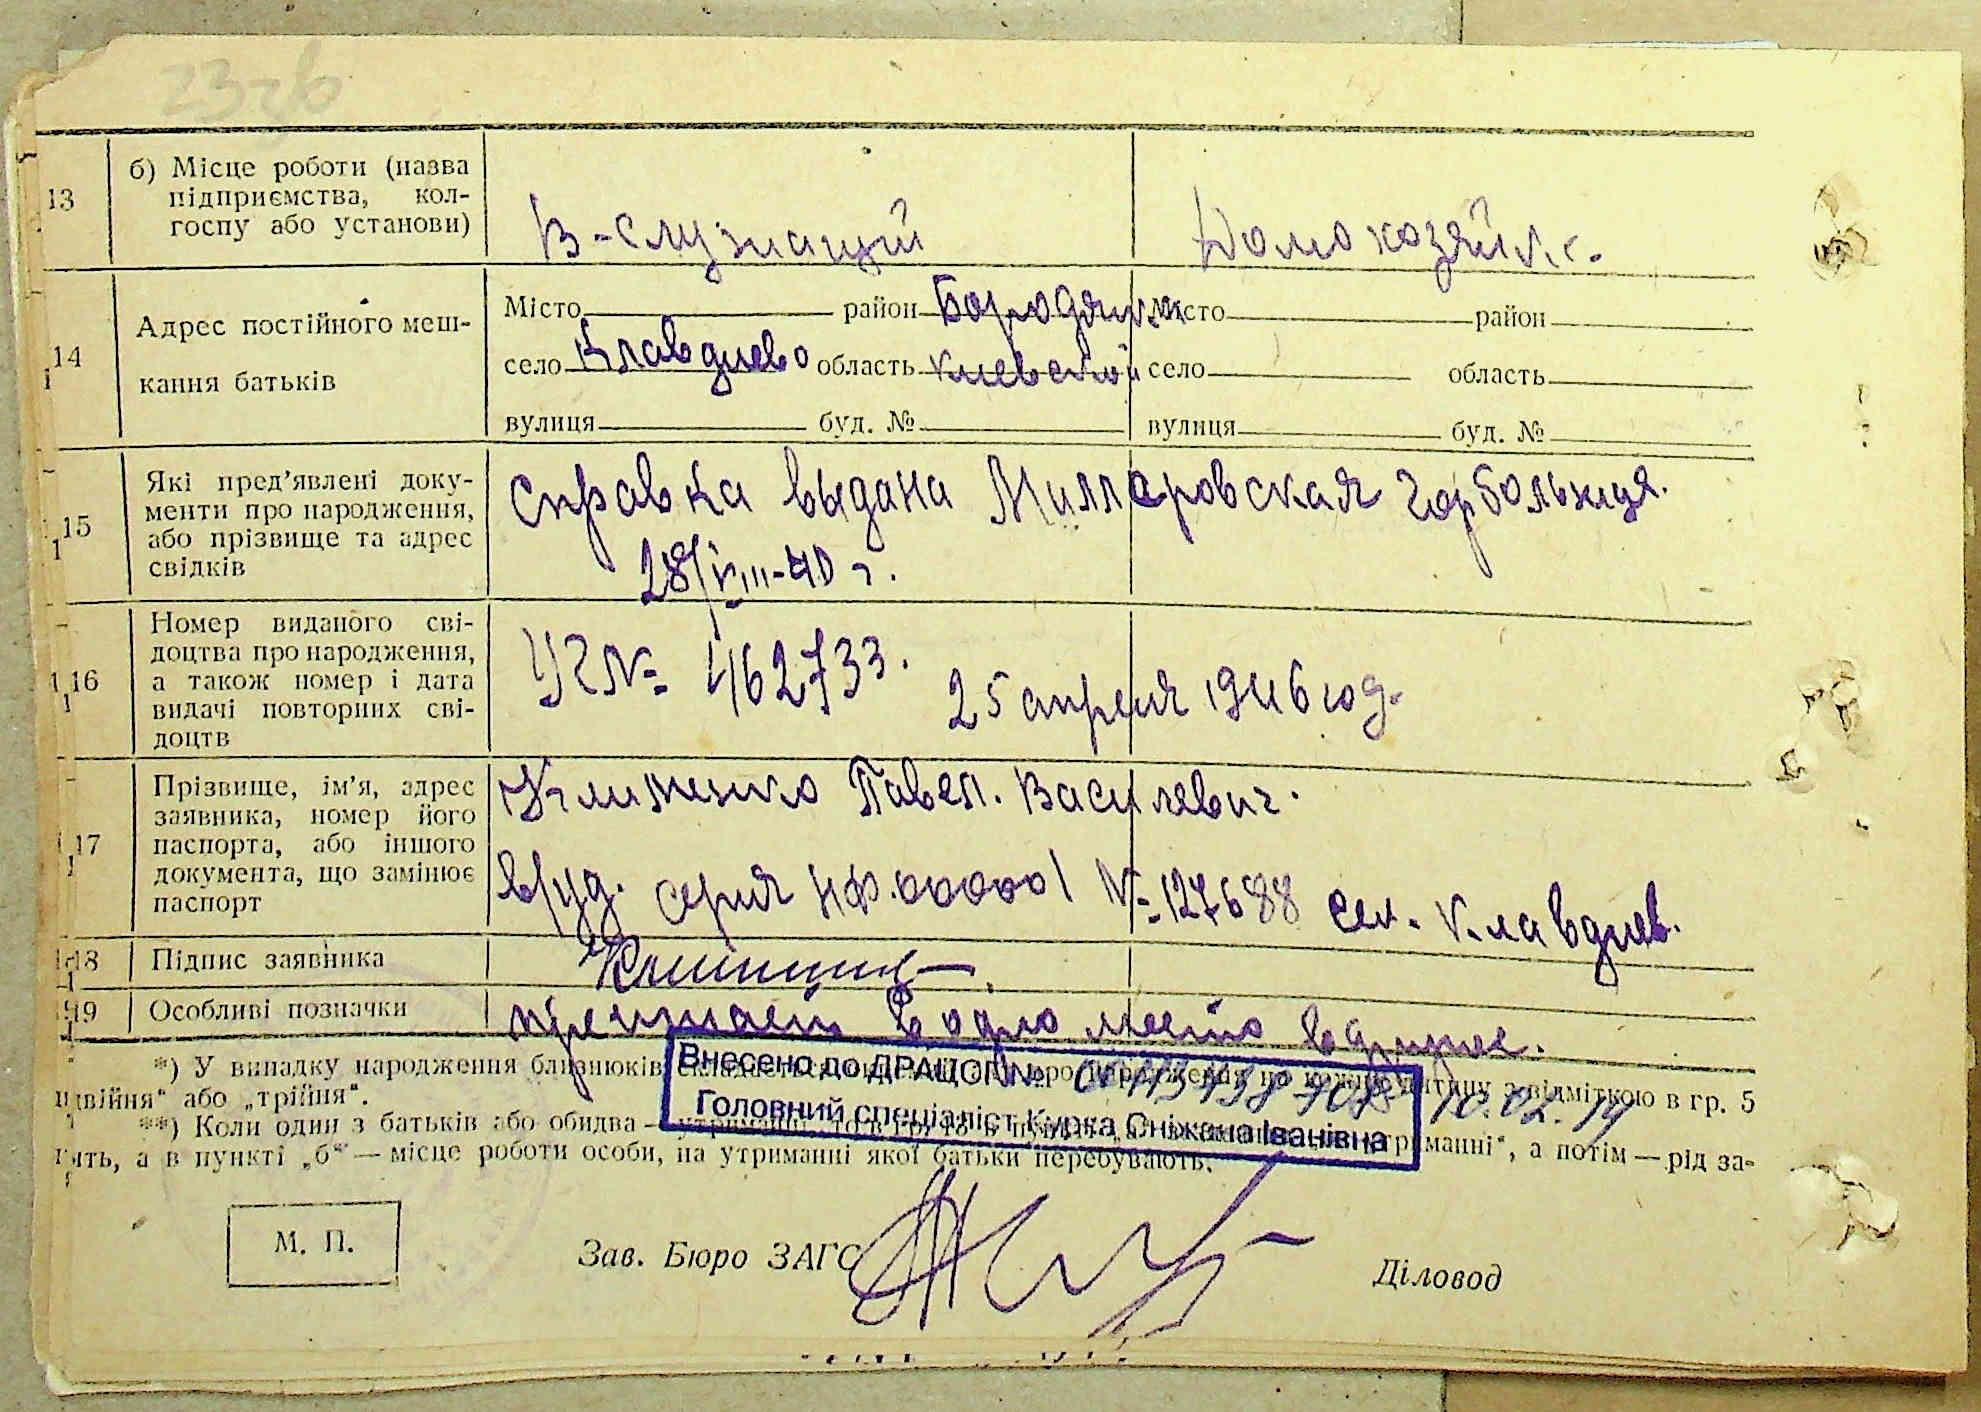 13
б) Місце роботи (назва
підприємства, кол-
госпу або установи)
В-служащий
Домохозяйк.
14
Адрес постійного меш-
кання батьків
Місто район Бородянск.
село Клавдиево область Киевской
вулиця буд. №
Місто район
село область
вулиця буд. №
15
Які пред'явлені доку-
менти про народження,
або прізвище та адрес
свідків
справка выдана Миллеровская горбольниця.
28/VIII-40 г.
16
Номер виданого сві-
доцтва про народження,
а також номер і дата
видачі повторних сві-
доцтв
УГ № 462733.
25 апреля 1946 год.
17
Прізвище, ім'я, адрес
заявника, номер його
паспорта, або іншого
документа, що замінює
паспорт
Клименко Павел. Василевич.
в/уд. серия НФ.000001 № 127688 сел. Клавдиев.
18
Підпис заявника
19
Особливі позначки
в одно место в другое.
*) У випадку народження близнюків народження на кожну дитину з відміткою в гр. 5
„двійня" або „трійня".
**) Коли один з батьків або обидва — утриманні", а потім — рід за-
нять, а в пункті „б" — місце роботи особи, на утриманні якої батьки перебувають.
Внесено до ДРАЦСГ № 10.02.14
Головний спеціаліст Курка Сніжана Іванівна
М. П.
Зав. Бюро ЗАГС
Діловод